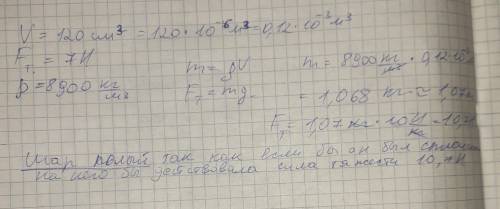 V = 120 см³ = 120 · 10⁻⁶ м³ = 0,12 · 10⁻³ м³
Fт = 7Н
ρ = 8900 кг/м³
m = ρV
Fт = mg
m = 8900 кг/м³ · 0,12 · 10
= 1,068 кг ≈ 1,07к
Fт = 1,07 кг · 10 Н/кг = 10,7
Шар полый так как если бы он был
на него бы действовала сила тяжести 10,7Н